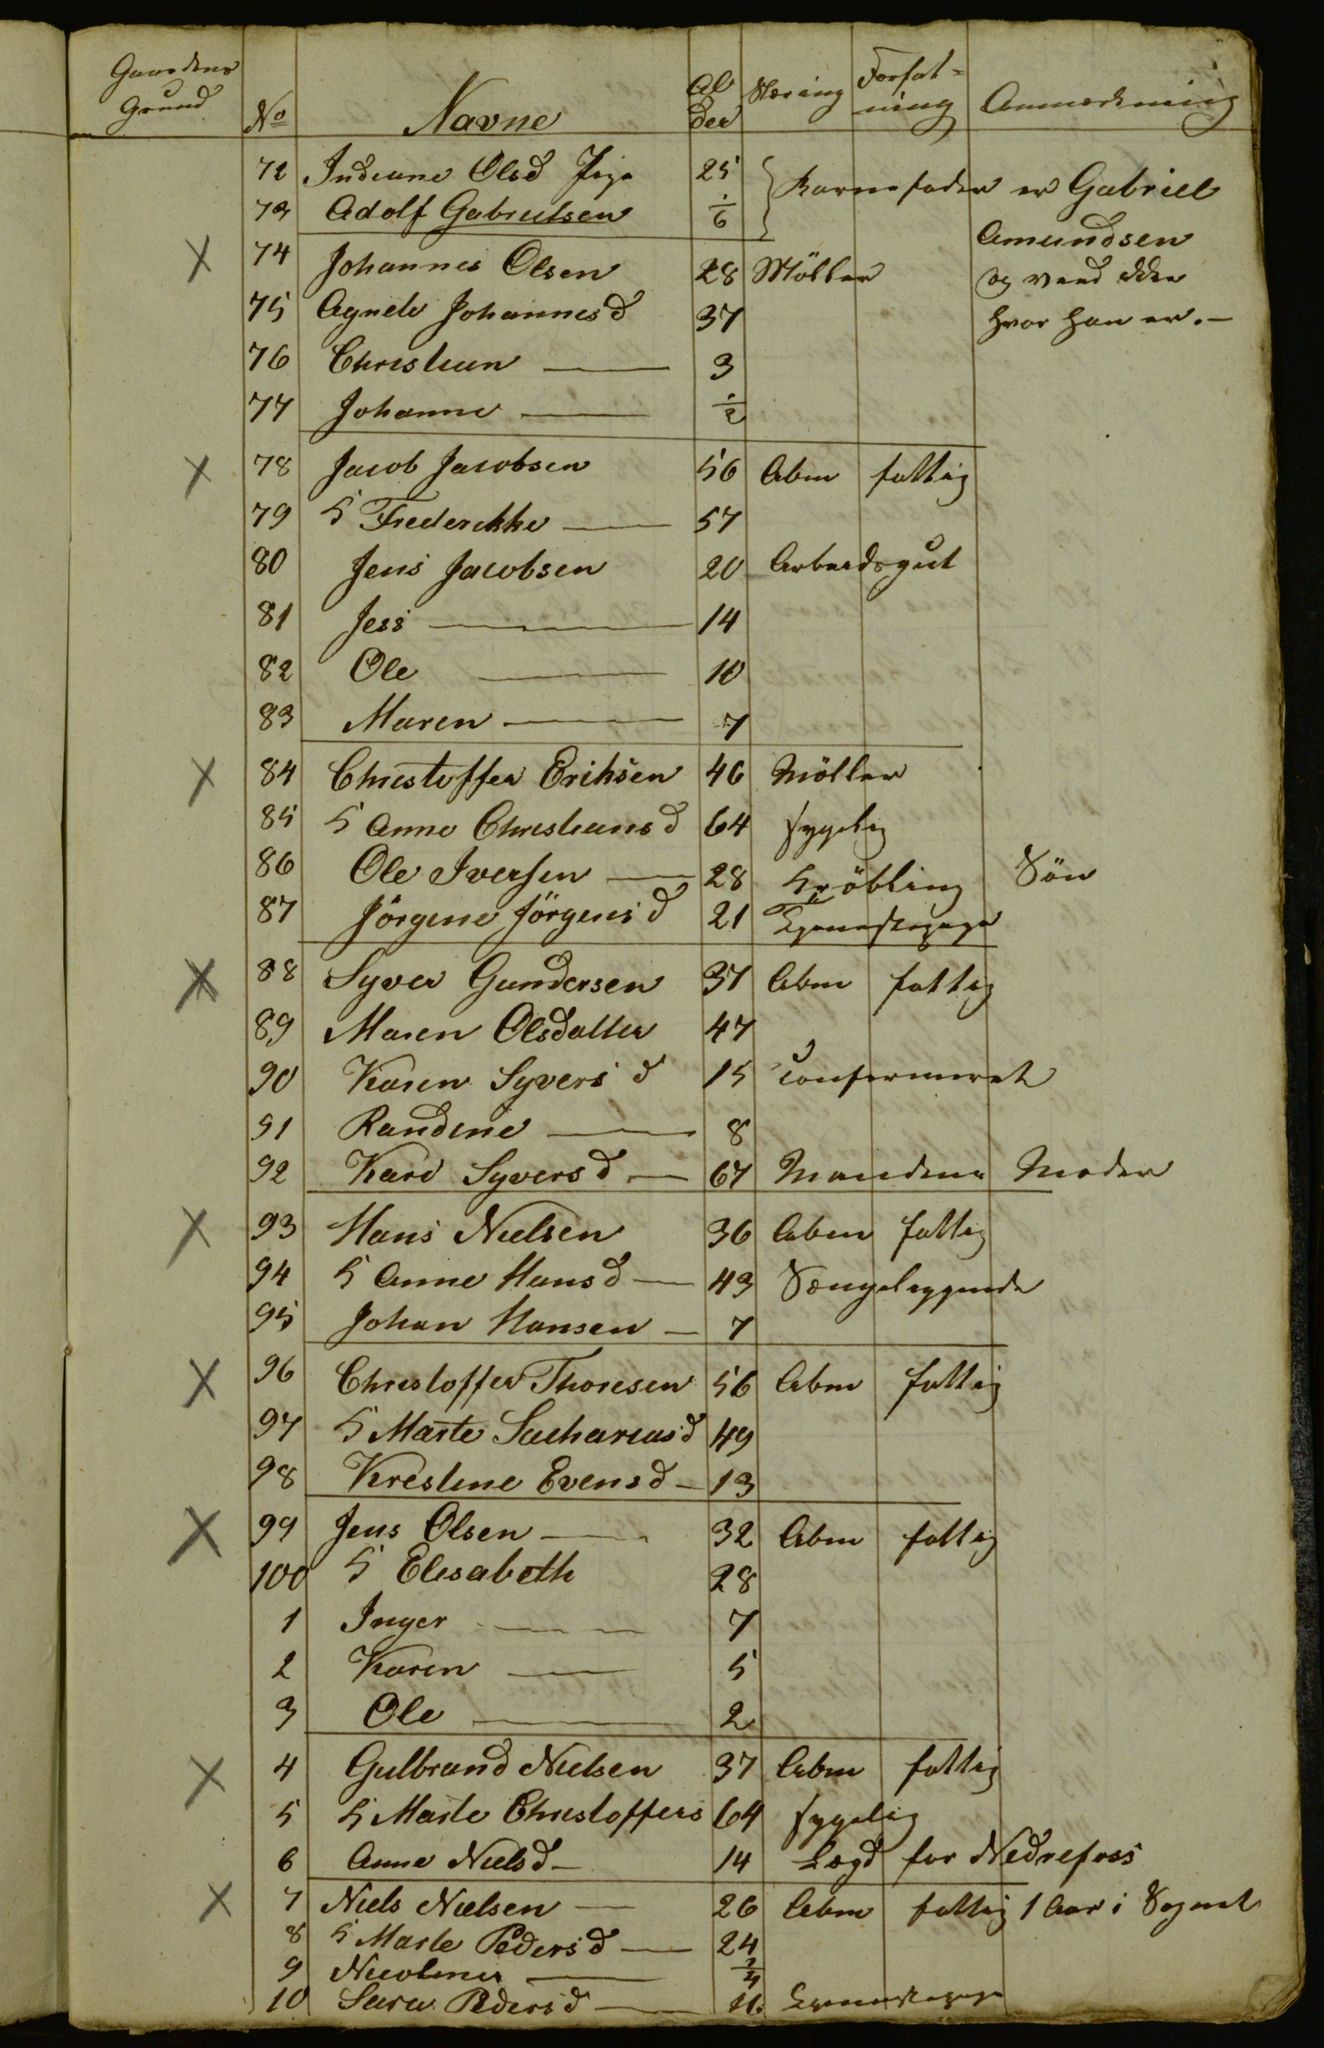 Gaardens Grund No Navne Alder Næring Forfatning Anmærkning
72 Indiane Olsd Pige 25 Barnefader er Gabriel
73 Adolf Gabrielsen 1/6 Amundsen
74 Johannes Olsen 28 Möller og veed ikke
75 Agnete Johannesd 37 hvor han er.-
76 Christian — 3
77 Johanne — 1/2
78 Jacob Jacobsen 56 Abm fattig
79 H Frederikke — 57
80 Jens Jacobsen 20 Arbeidsgut
81 Jess — 14
82 Ole — 10
83 Maren — 7
84 Christoffer Eriksen 46 Möller
85 H Anne Christiansd 64 sygelig
86 Ole Iversen — 28 Kröbling Sön
87 Jörgine Jörgensd 21 Tjenestepige
88 Syver Gundersen 37 Abm fattig
89 Maren Olsdatter 47
90 Karen Syversd 15 Confirmeret
91 Randine — 8
92 Kari Syversd — 67 Mandens Moder
93 Hans Nielsen 36 Abm fattig
94 H Anne Hansd — 43 Sengeliggende
95 Johan Hansen — 7
96 Christoffer Thoresen 56 Abm fattig
97 H Marte Sachariasd 49
98 Kristine Evensd — 13
99 Jens Olsen — 32 Abm fattig
100 H Elisabeth 28
1 Inger — 7
2 Karen — 5
3 Ole — 2
4 Gulbrand Nielsen 37 Abm fattig
5 H Marte Christoffers 64 sygelig
6 Anne Nielsd — 14 Lægd for Nedrefoss
7 Niels Nielsen — 26 Abm fattig 1 Aar i Sognet
8 H Marte Pedersd — 24
9 Nicoline — 3/4
10 Sara Pedersd — Tjenestepige